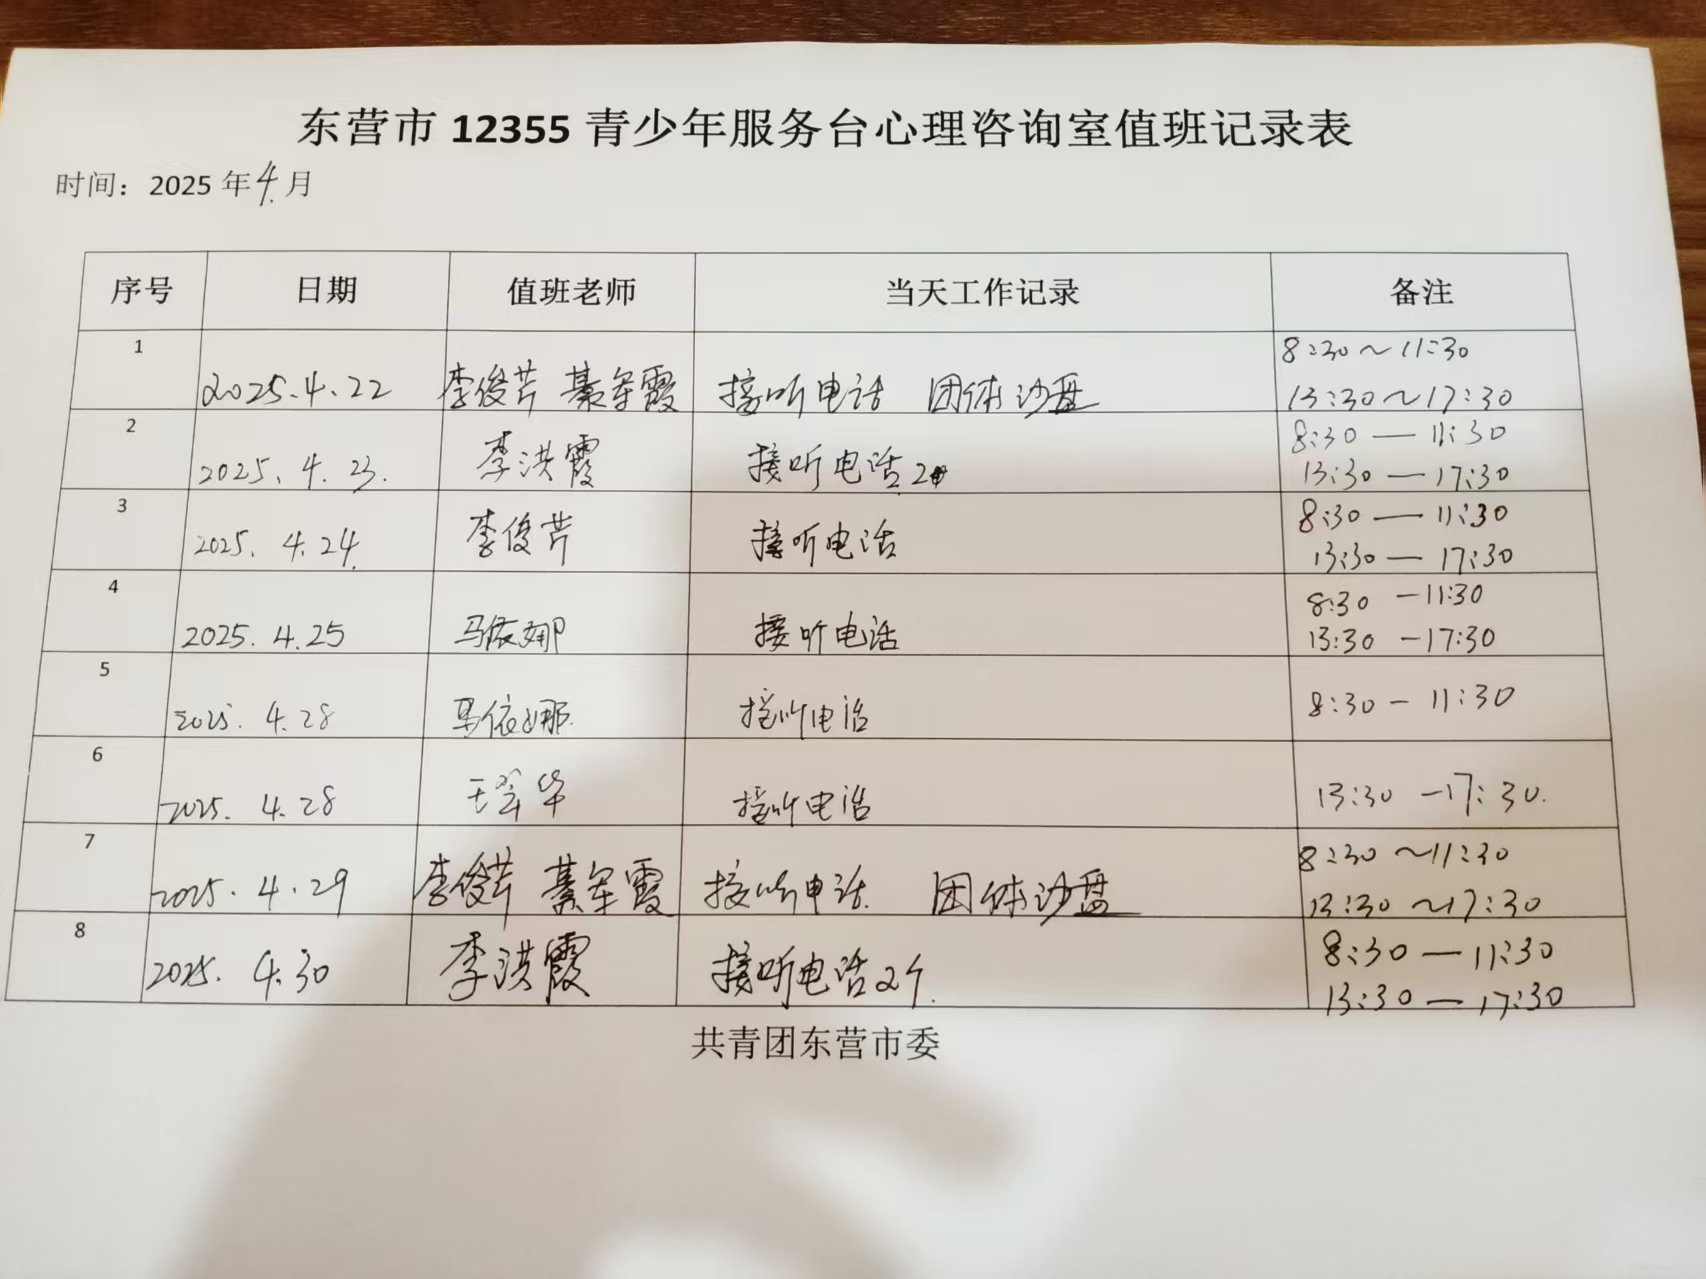 东营市 12355 青少年服务台心理咨询室值班记录表
时间：2025 年 4 月
序号 日期 值班老师 当天工作记录 备注
1 2025.4.22 李俊芹 綦军霞 接听电话 团体沙盘 8:30～11:30
13:30～17:30
2 2025.4.23. 李洪霞 接听电话2个 8:30—11:30
13:30—17:30
3 2025.4.24. 李俊芹 接听电话 8:30—11:30
13:30—17:30
4 2025.4.25 马依娜 接听电话 8:30-11:30
13:30-17:30
5 2025.4.28 马依娜. 接听电话 8:30-11:30
6 2025.4.28 王 华 接听电话 13:30-17:30.
7 2025.4.29 李俊芹 綦军霞 接听电话. 团体沙盘 8:30～11:30
13:30～17:30
8 2025.4.30 李洪霞 接听电话2个. 8:30—11:30
13:30—17:30
共青团东营市委